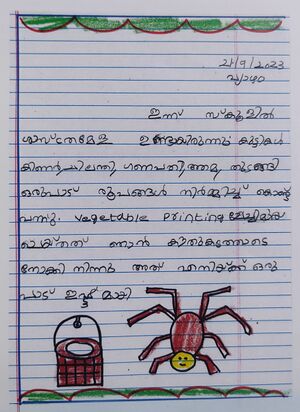 21/9/2023
വ്യാഴം
ഇന്ന് സ്കൂളിൽ
ശാസ്ത്രമേള ഉണ്ടായിരുന്നു കുട്ടികൾ
കിണർ, ചിലന്തി, ഗണപതി, ആമ, തുടങ്ങി
ഒരുപാട് രൂപങ്ങൾ നിർമ്മിച്ച് കൊണ്ട്
വന്നു. vegetable Printing
ചെയ്തത് ഞാൻ കൗതുകത്തോടെ
നോക്കി നിന്നു അത് എനിയ്ക്ക് ഒരു
പാട് ഇഷ്ടമായി